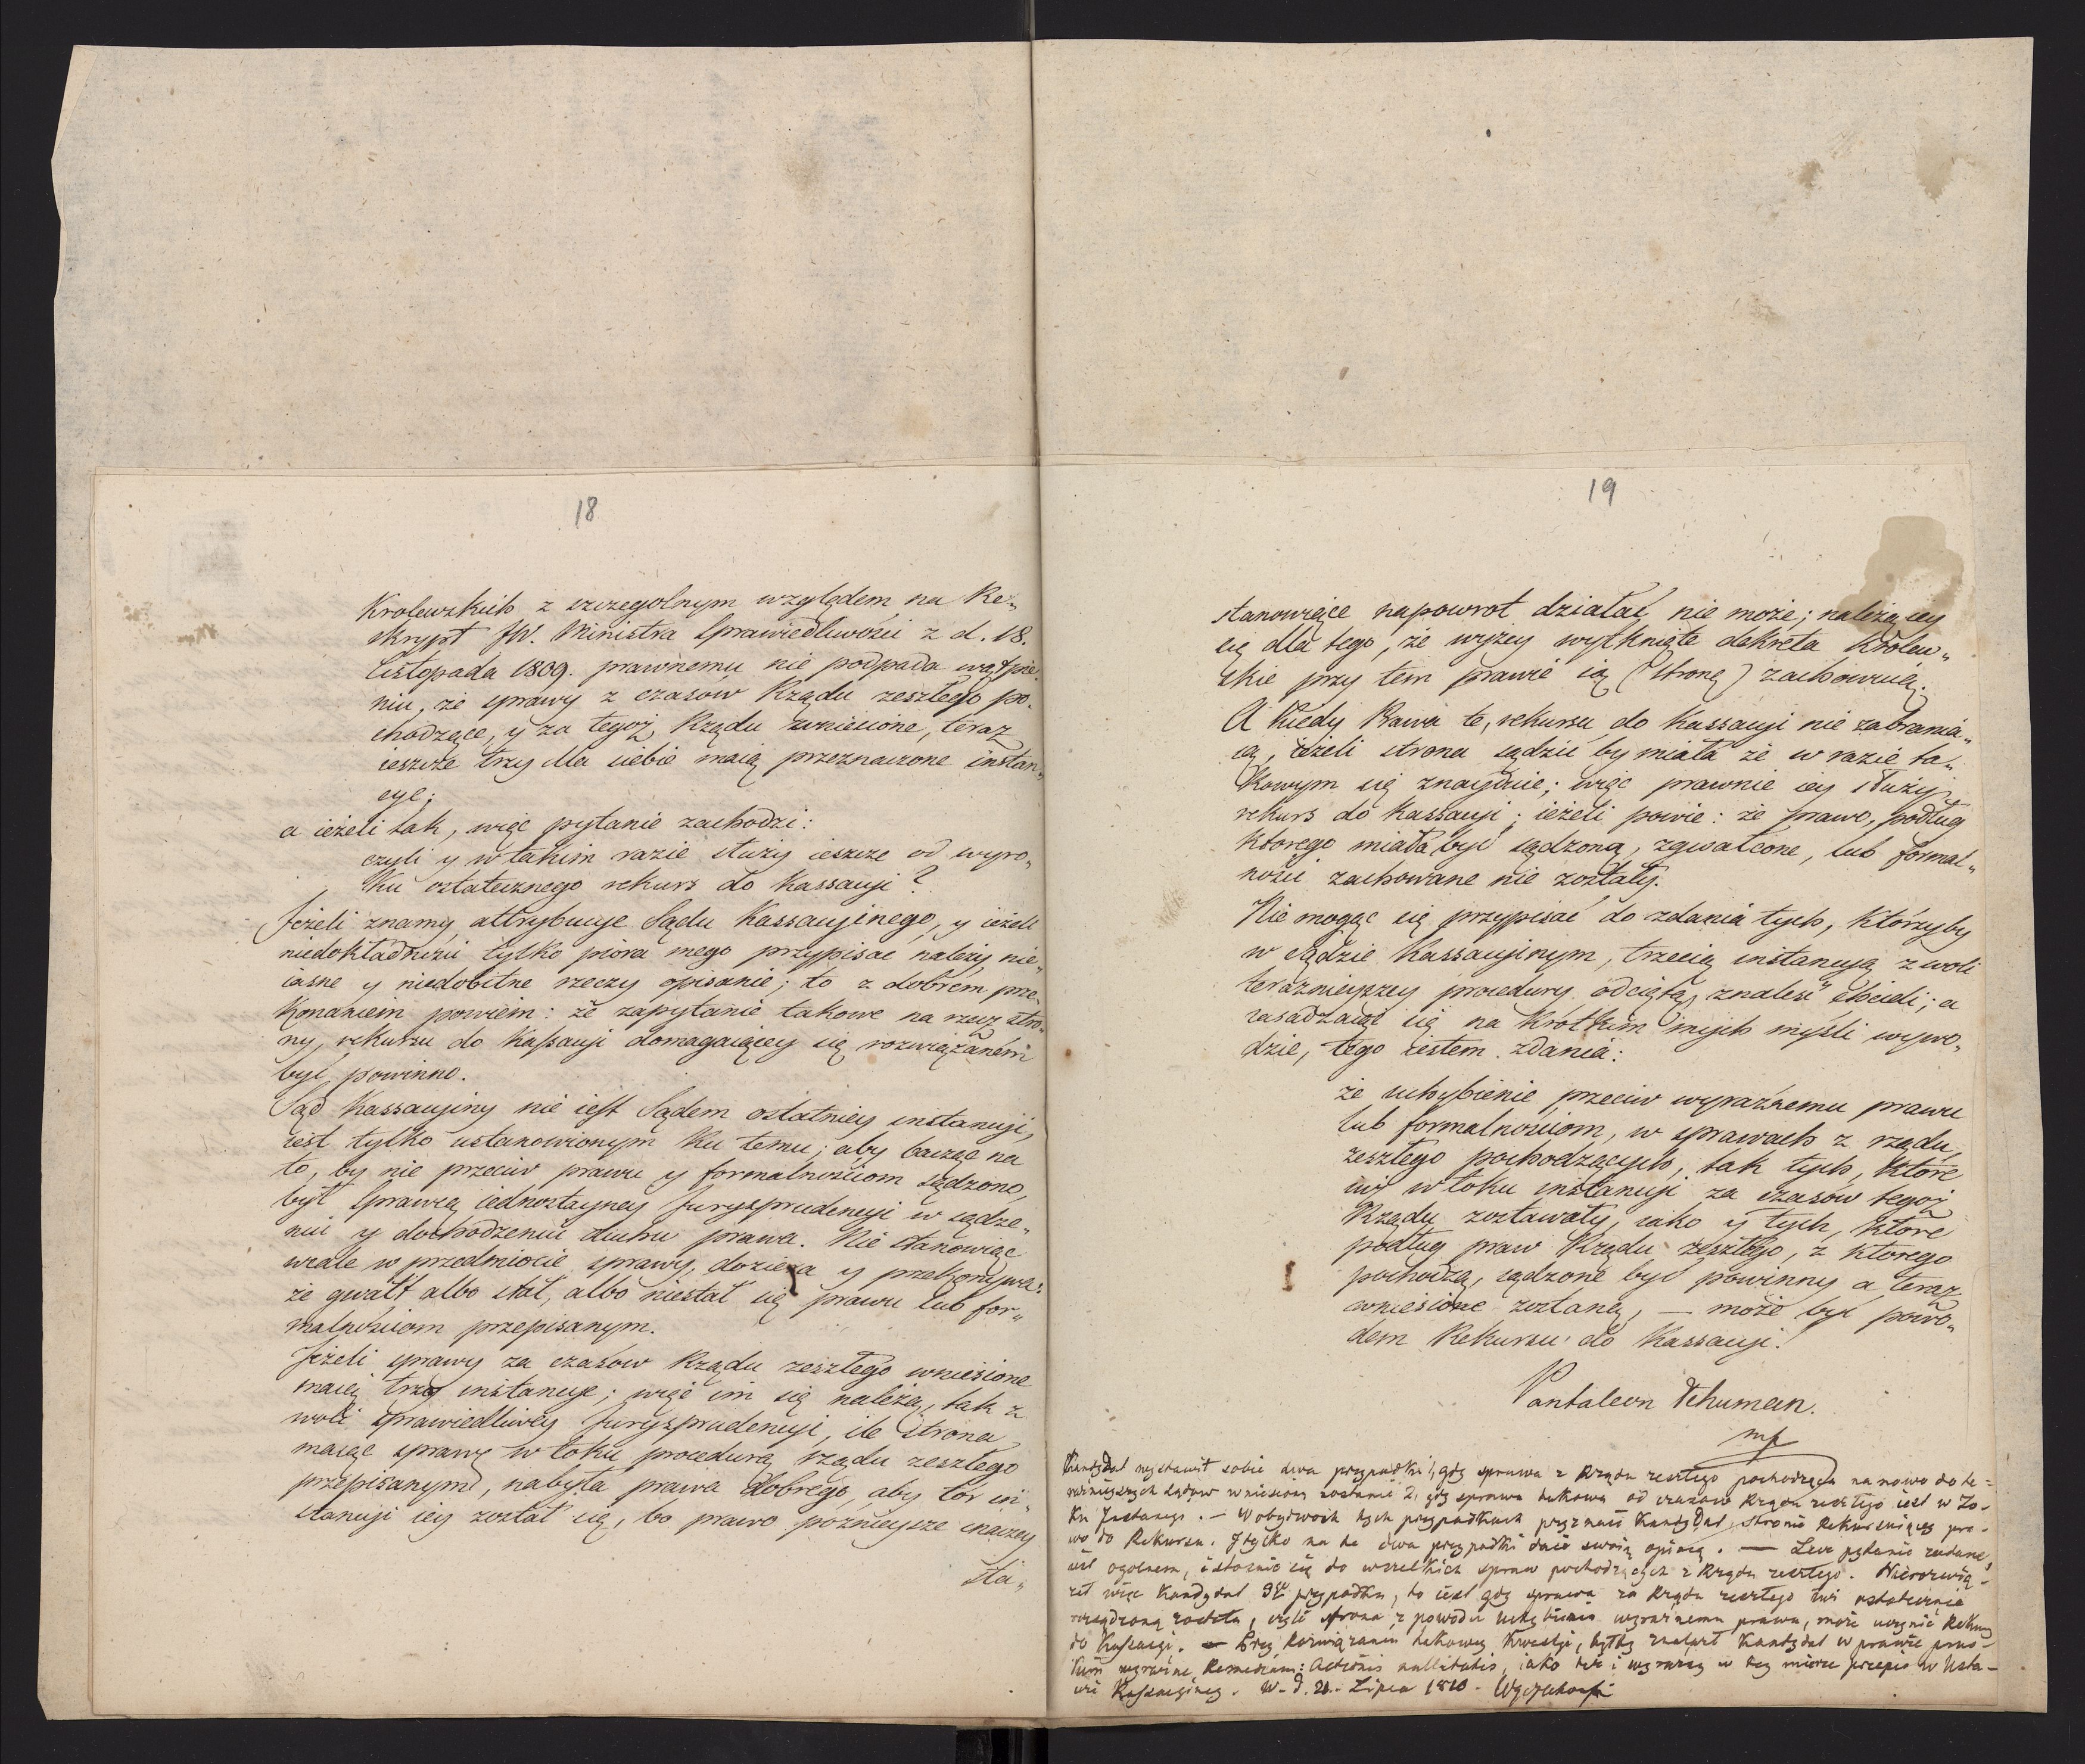 18
Krolewskich z szczegolnym względem na Re„
skrypt JW. Ministra Sprawiedliwości z d. 18.
Listopada 1809. prawnemu nie podpada wątpie„
niu, że sprawy z czasów Rządu zeszłego po„
chodzące, y za tegoż Rządu wniesione, teraz
ieszcze trzy dla siebie maią przeznaczone instan„
cye;
a ieżeli tak, więc pytanie zachodzi:
czyli y w takim razie służy ieszcze od wyro„
ku ostatecznego rekurs do Kassacyi?
Jeżeli znamy attrybucye Sądu Kassacyinego, y ieżeli
niedokładności tylko pióra mego przypisać należy nie„
iasne y niedobitne rzeczy opisanie; to z dobrem prze„
konaniem powiem: że zapytanie takowe na rzecz stro„
ny, rekursu do Kassacyi domagaiącey się rozwiązanem
być powinno.
Sąd Kassacyiny nie iest Sądem ostatniey instancyi,
iest tylko ustanowionym ku temu; aby bacząc na
to, by nie przeciw prawu y formalnościom sądzono,
był sprawcą iednostayney Jurysprudencyi w sądze„
niu y dochodzeniu ducha prawa. Nie stanowiąc
wcale w przedmiocie sprawy, doziera y przekonywa:
że gwałt albo stał, albo niestał się prawu lub for„
malnościom przepisanym.
Jeżeli sprawy za czasów Rządu zeszłego wniesione
maią trzy instancye; więc im się należą, tak z
woli sprawiedliwey Jurysprudencyi, ile strona
maiąc sprawę w toku procedurą rządu zeszłego
przepisanym, nabyła prawa dobrego, aby tor in„
stancyi iey został się, bo prawo poźnieysze inaczey
sta„
19
stanowiące napowrot działać nie może; należą iey
się dla tego, że wyżey wytknięte dekreta Krolew„
skie przy tem prawie ią (stronę) zachowuią.
A kiedy Prawa te, rekursu do Kassacyi nie zabrania„
ią, ieżeli strona sądzić by miała że w razie ta„
kowym się znayduie; więc prawnie iey służy
rekurs do Kassacyi; ieżeli powie: że prawo, podług
ktorego miała być sądzoną, zgwałcone, lub formal„
ności zachowane nie zostały.
Nie mogąc się przypisać do zdania tych, ktorzyby
w sądzie Kassacyinym, trzecią instancyą z woli
teraznieyszey procedury odciętą, znaleść chcieli; a
zasadzaiąc się na krotkim moich myśli wywo„
dzie, tego iestem zdania:
że uchybienie przeciw wyraźnemu prawu
lub formalnościom, w sprawach z rządu
zeszłego pochodzących, tak tych, ktore
iuż w toku instancyi za czasów tegoż
Rządu zostawały, iako y tych, ktore
podług praw Rządu zeszłego, z ktorego
pochodzą, sądzone być powinny a teraz
wniesione zostaną, — może być powo„
dem Rekursu do Kassacyi.
Pantaleon Schuman.
mp
Kandydat wystawił sobie dwa przypadki 1, gdy sprawa z Rządu zeszłego pochodząca na nowo do te=
raźnieyszych Sądow wniesiona zostanie 2, gdy sprawa takowa od czasow Rządu zeszłego iest w To-
ku Instancyi. — W obydwoch tych przypadkach przyznaie Kandydat stronie Rekuruiącey pra-
wo do Rekursu. I tylko na te dwa przypadki daie swoią opinią. — Lecz pytanie zadane
iest ogolnem, i stosuie się do wszelkich spraw pochodzących z Rządu zeszłego. Nierozwią-
zał więc Kandydat 3go przypadku, to iest gdy sprawa za Rządu zeszłego iuż ostatecznie
rozsądzoną została, czyli strona z powodu uchybienia wyraźnemu prawu, może uczynić Rekurs
do Kassacyi. — Przy Rozwiązaniu takowey kwestyi, byłby znalazł Kandydat w prawie prus-
kim wyraźne Remedium: Actionis nullitatis, iako też i wyraźny w tey mierze przepis w Usta-
wie Kassacyiney. W. d. 21. Lipca 1810. Wyczechowski